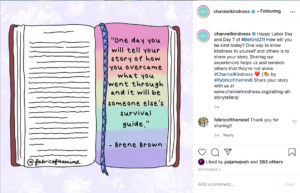 channelkindness • Following
"One day you
will tell your
story of how
you overcame
what you
went through
and it will be
someone else's
survival
guide."
- Brene Brown
@fabricofthemind
channelkindness Happy Labor Day
and Day 7 of #BeKind21! How will you
be kind today? One way to show
kindness to yourself and others is to
share your story. Sharing our
experiences helps us and reminds
others that they're not alone.
#ChannelKindness ❤️ (📷 by
@fabricofthemind) Share your story
with us at
www.channelkindness.org/calling-all-
storytellers/
fabricofthemind Thank you for
sharing!!
Reply
Liked by pajamajosh and 383 others
SEPTEMBER 7
Add a comment...
Post